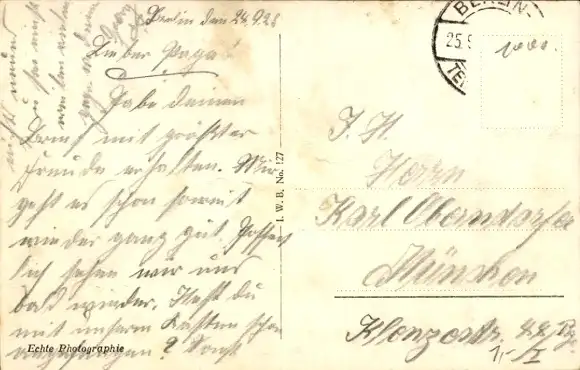 Berlin den 24.9.28
Lieber Papa!
Habe deinen
Brief mit größter
Freude erhalten. Mir
geht es schon soweit
wieder ganz gut. Hoffent
lich sehen wir uns
bald wieder. Hast du
mit unserm Kasten schon
angefangen? Sonst
Georg
Echte Photographie
I. W. B. No. 127
BERLIN-
25.9
TE
S. H.
Herrn
Karl Oberndorfer
München
Klenzestr.